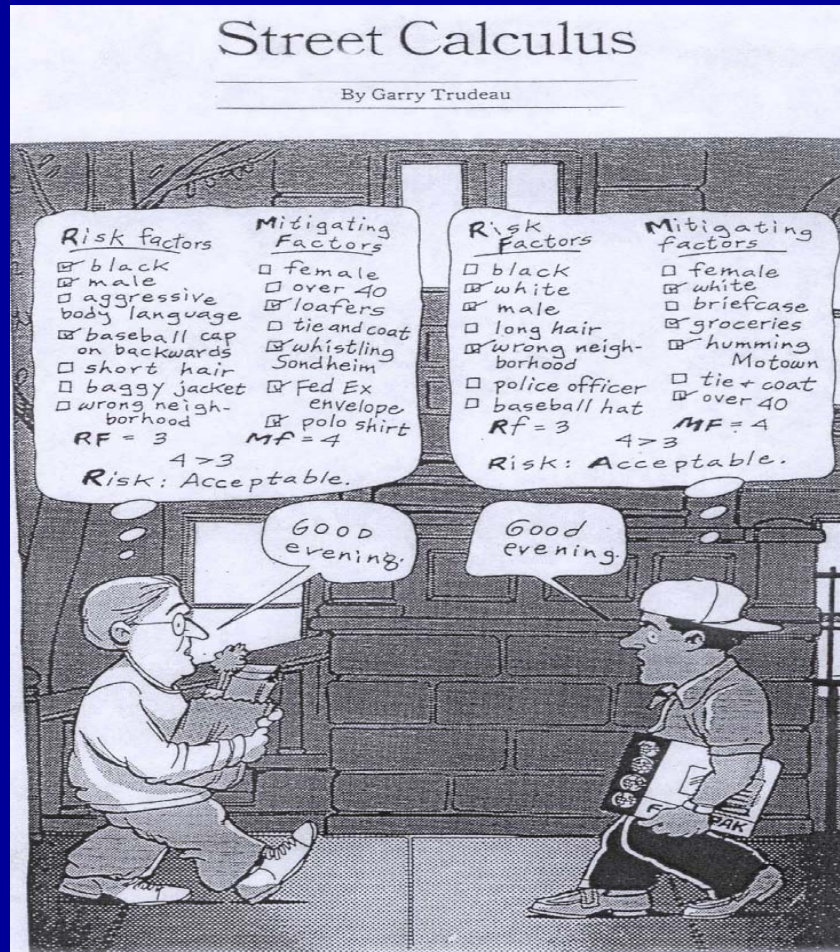 Street Calculus
By Garry Trudeau
Risk factors
☑ black
☑ male
☐ aggressive
body language
☑ baseball cap
on backwards
☐ short hair
☐ baggy jacket
☐ wrong neigh-
borhood
RF = 3
Mitigating
Factors
☐ female
☐ over 40
☑ loafers
☐ tie and coat
☑ whistling
Sondheim
☑ Fed Ex
envelope
☑ polo shirt
Mf = 4
4 > 3
Risk: Acceptable.
Risk
Factors
☐ black
☑ white
☑ male
☐ long hair
☑ wrong neigh-
borhood
☐ police officer
☐ baseball hat
Rf = 3
Mitigating
factors
☐ female
☑ white
☐ briefcase
☑ groceries
☑ humming
Motown
☐ tie + coat
☑ over 40
MF = 4
4 > 3
Risk: Acceptable.
GOOD
evening.
Good
evening.
PAK